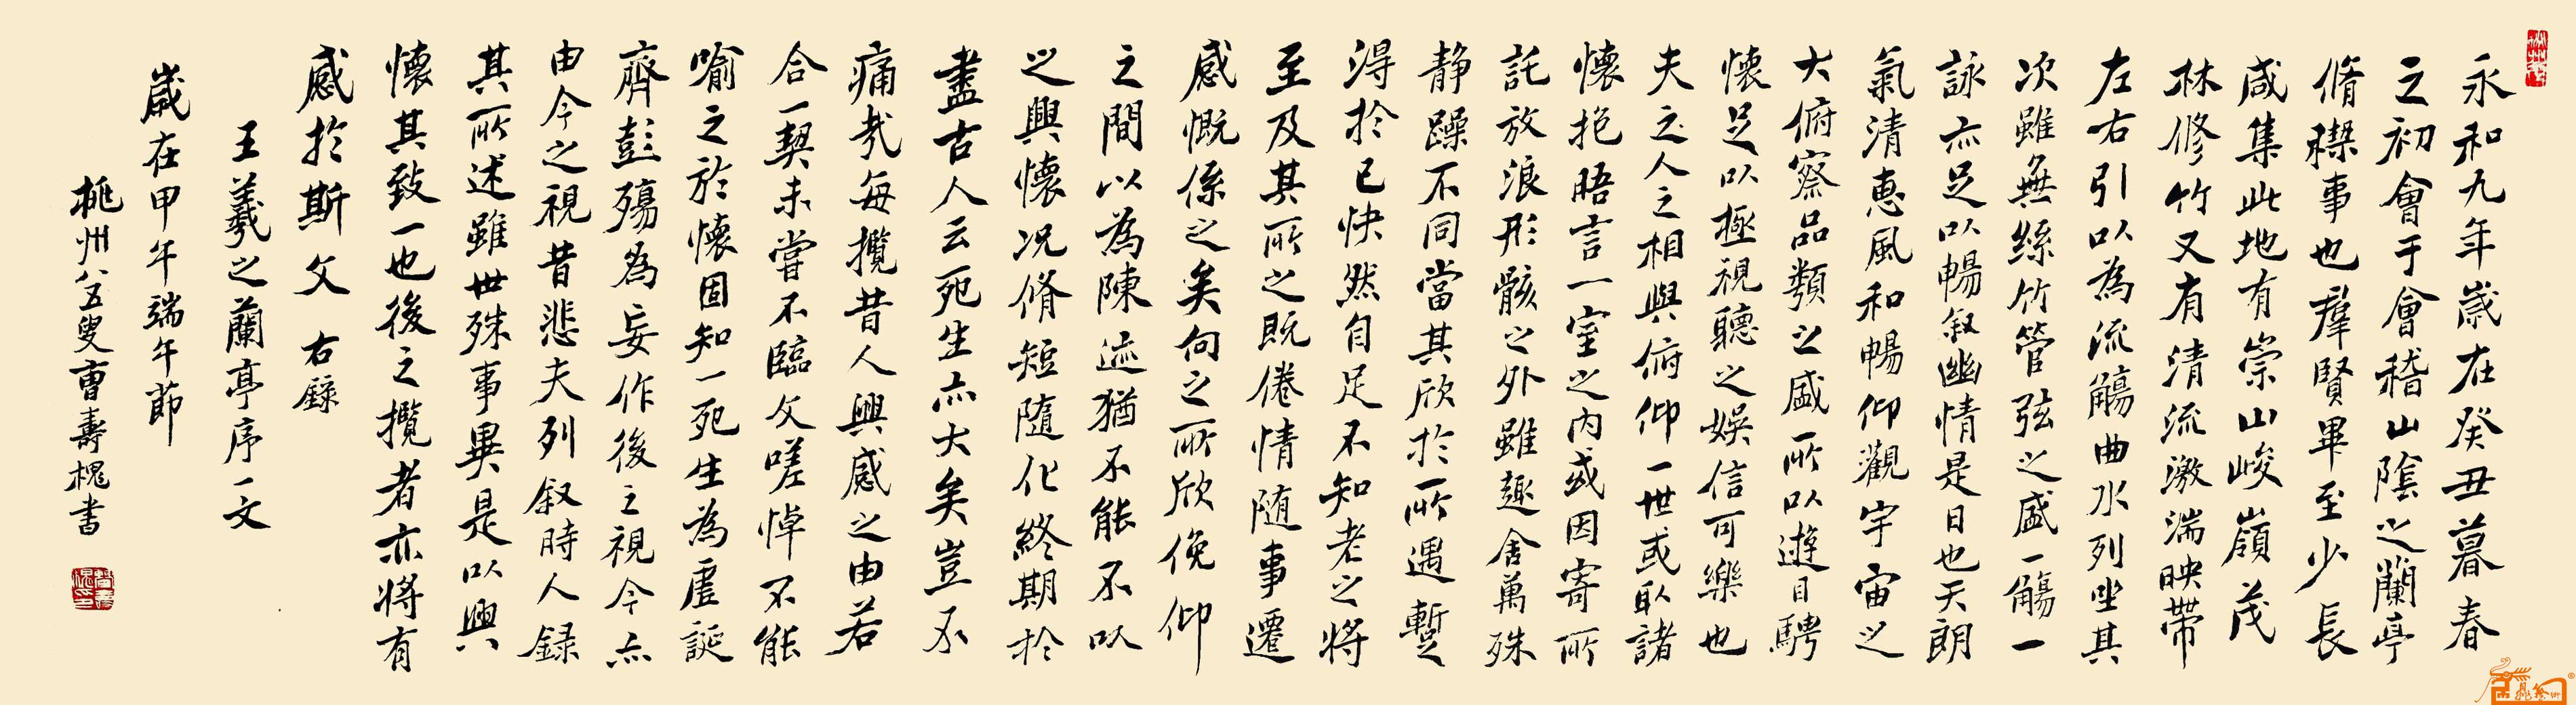 永和九年歲在癸丑暮春
之初會于會稽山陰之蘭亭
脩稧事也羣賢畢至少長
咸集此地有崇山峻嶺茂
林修竹又有清流激湍映帶
左右引以為流觴曲水列坐其
次雖無絲竹管弦之盛一觴一
詠亦足以暢叙幽情是日也天朗
氣清惠風和暢仰觀宇宙之
大俯察品類之盛所以遊目騁
懷足以極視聽之娛信可樂也
夫之人之相與俯仰一世或取諸
懷抱晤言一室之內或因寄所
託放浪形骸之外雖趣舍萬殊
静躁不同當其欣於所遇暫
得於己快然自足不知老之將
至及其所之既倦情随事遷
感慨係之矣向之所欣俛仰
之間以為陳迹猶不能不以
之興懷况脩短隨化終期於
盡古人云死生亦大矣豈不
痛哉每攬昔人興感之由若
合一契未嘗不臨文嗟悼不能
喻之於懷固知一死生為虛誕
齊彭殤為妄作後之視今亦
由今之視昔悲夫列叙時人録
其所述雖世殊事異是以興
懷其致一也後之攬者亦將有
感於斯文 右錄
王羲之蘭亭序一文
歲在甲午端午節
桃州八五叟曹壽槐書